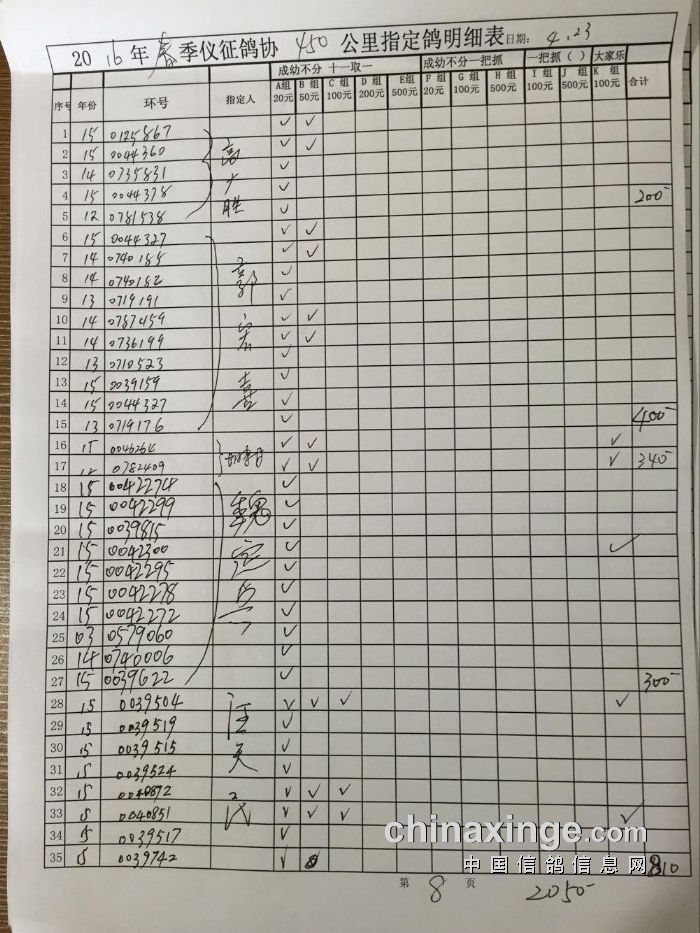 20 16 年 春 季仪征鸽协 450 公里指定鸽明细表 日期： 4.23
序号 年份 环号 指定人 成幼不分 十一取一 成幼不分一把抓 一把抓（ ） 大家乐 合计
A组 20元 B 组 50元 C 组 100元 D 组 200元 E组 500元 F 组 20元 G 组 100元 H 组 500元 I 组 100元 J 组 500元 K 组 100元
1 15 0125867 ✓ ✓
2 15 0044360 ✓ ✓
3 14 0735831 ✓
4 15 0044378 ✓ 200
5 12 0781538 ✓
6 15 0044327 ✓ ✓
7 14 0740185 ✓ ✓
8 14 0740182 ✓
9 13 0719191 ✓
10 14 0787459 ✓ ✓
11 14 0736199 ✓ ✓
12 13 0710523 ✓
13 15 0039159 ✓
14 15 0044327 ✓
15 13 0719176 ✓ 400
16 15 0046264 ✓ ✓ ✓
17 12 0782409 ✓ ✓ ✓ 340
18 15 0042274 ✓
19 15 0042299 ✓
20 15 0039815 ✓
21 15 0042300 ✓ ✓
22 15 0042295 ✓
23 15 0042278 ✓
24 15 0042272 ✓
25 03 0579060 ✓
26 14 0740006 ✓
27 15 0039622 ✓ 300
28 15 0039504 汪 ✓ ✓ ✓ ✓
29 15 0039519 ✓
30 15 0039515 天 ✓
31 15 0039524 ✓
32 15 0040872 ✓ ✓ ✓
33 15 0040851 ✓ ✓ ✓ ✓
34 15 0039517 ✓
35 15 0039742 ✓ 810
第 8 页 2050
chinaxinge.com
中国信鸽信息网